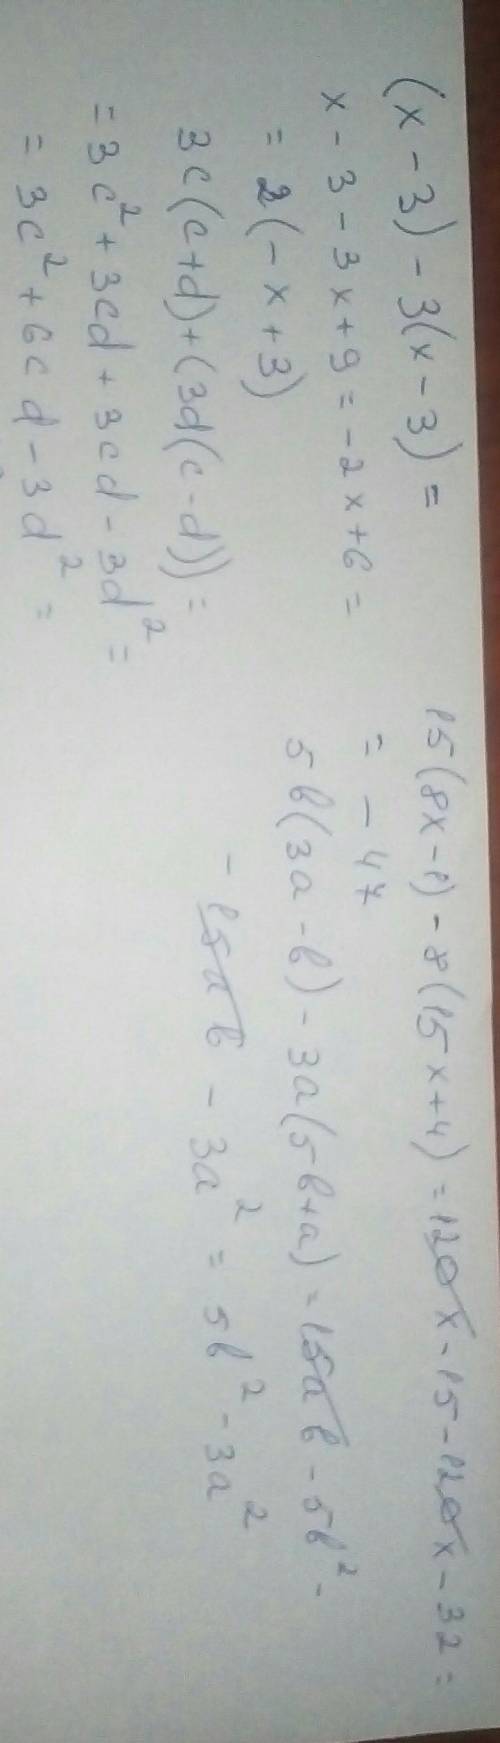 (x - 3) - 3(x - 3) =
x - 3 - 3x + 9 = -2x + 6 =
= 2(-x + 3)
3c(c+d)+(3d(c-d)) =
= 3c² + 3cd + 3cd - 3d² =
= 3c² + 6cd - 3d² =
15(8x-1) - 8(15x+4) = 120x - 15 - 120x - 32 =
= - 47
5b(3a - b) - 3a(5b+a) = 15ab - 5b² -
- 15ab - 3a² = 5b² - 3a²